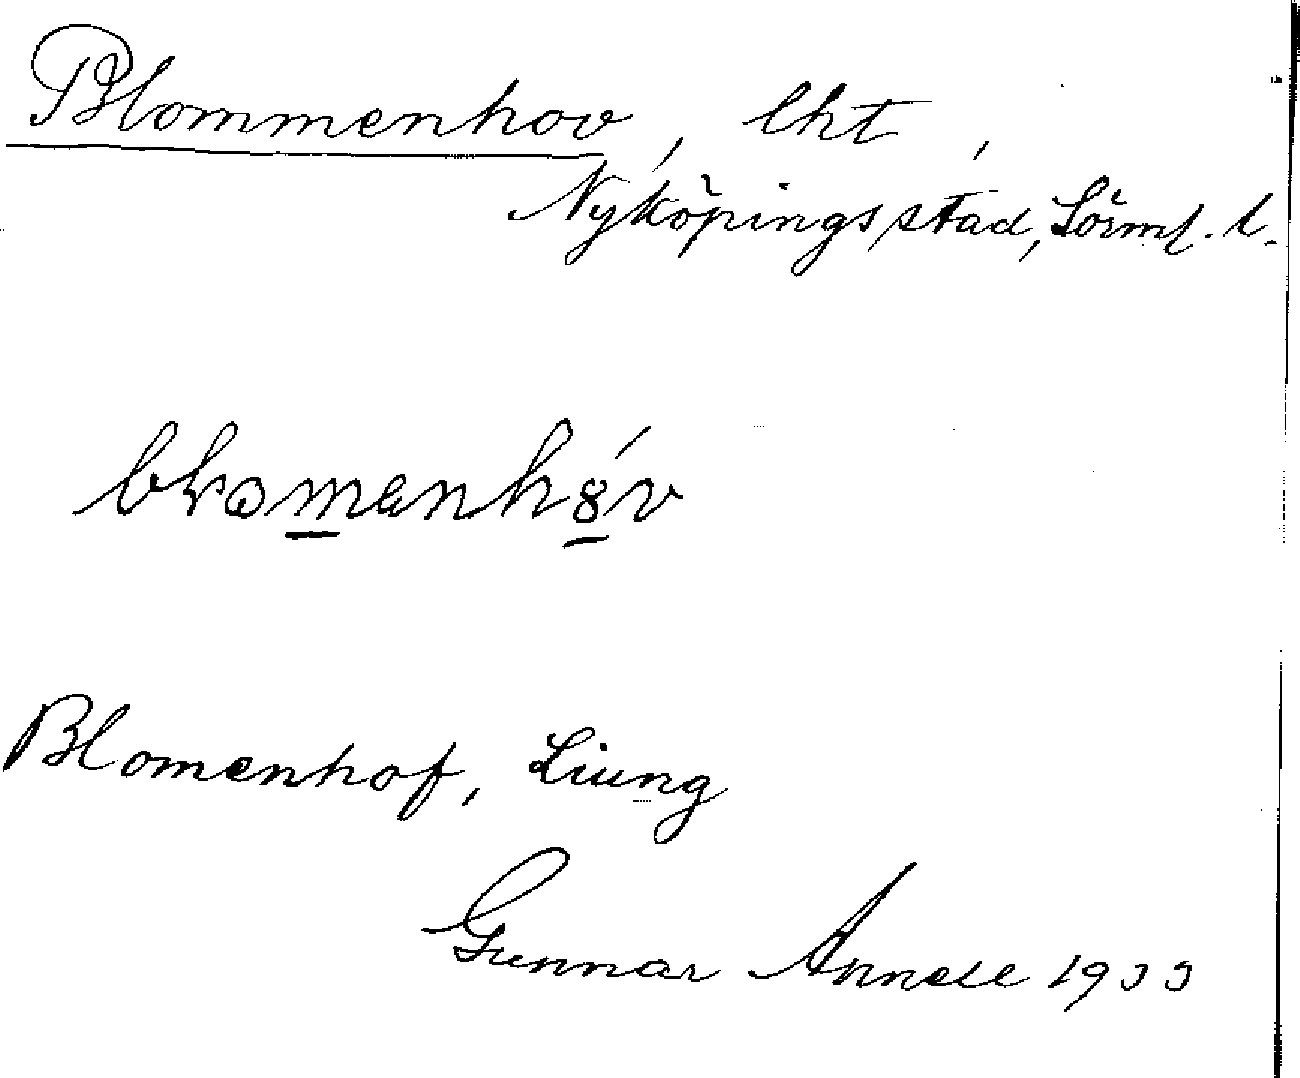 Blommenhov, lht,
Nyköpings stad, Sörml. l.
Blomenhof, Liung
Gunnar Annell 1933